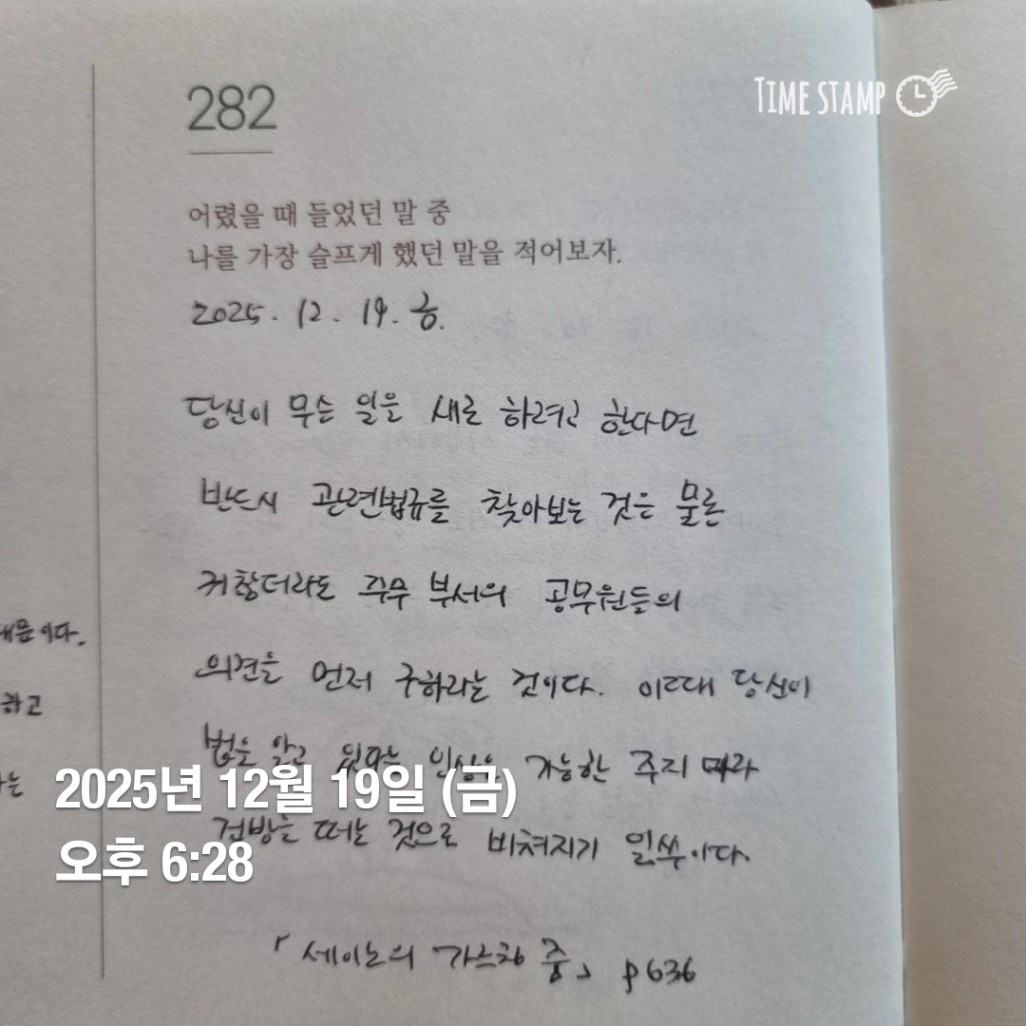 282
TIME STAMP
어렸을 때 들었던 말 중
나를 가장 슬프게 했던 말을 적어보자.
2025. 12. 19. 금.
당신이 무슨 일을 새로 하려고 한다면
반드시 관련법규를 찾아보는 것은 물론
귀찮더라도 직무 부서의 공무원들의
의견을 먼저 구하라는 것이다. 이때 당신이
법을 알고 있다는 인상은 가능한 주지 마라
건방을 떠는 것으로 비쳐지기 일쑤이다.
「세이노의 가르침 중」 p636
하고
2025년 12월 19일 (금)
오후 6:28